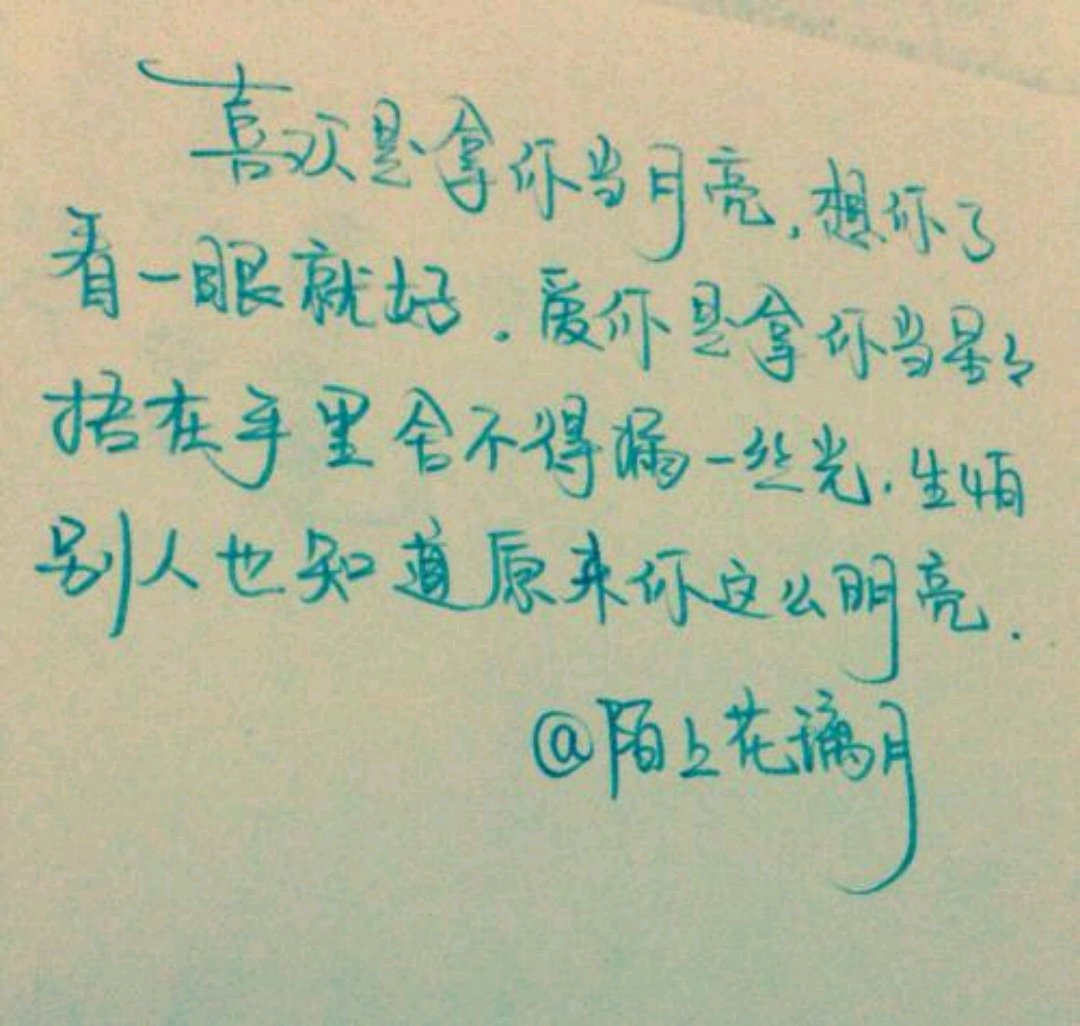 喜欢是拿你当月亮,想你了
看一眼就好.爱你是拿你当星星
捂在手里舍不得漏一丝光.生怕
别人也知道原来你这么明亮.
@陌上花璃月